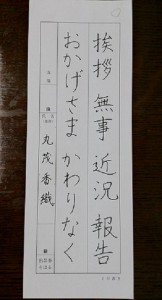 挨拶 無事 近況 報告
おかげさま かわりなく
丸茂香織